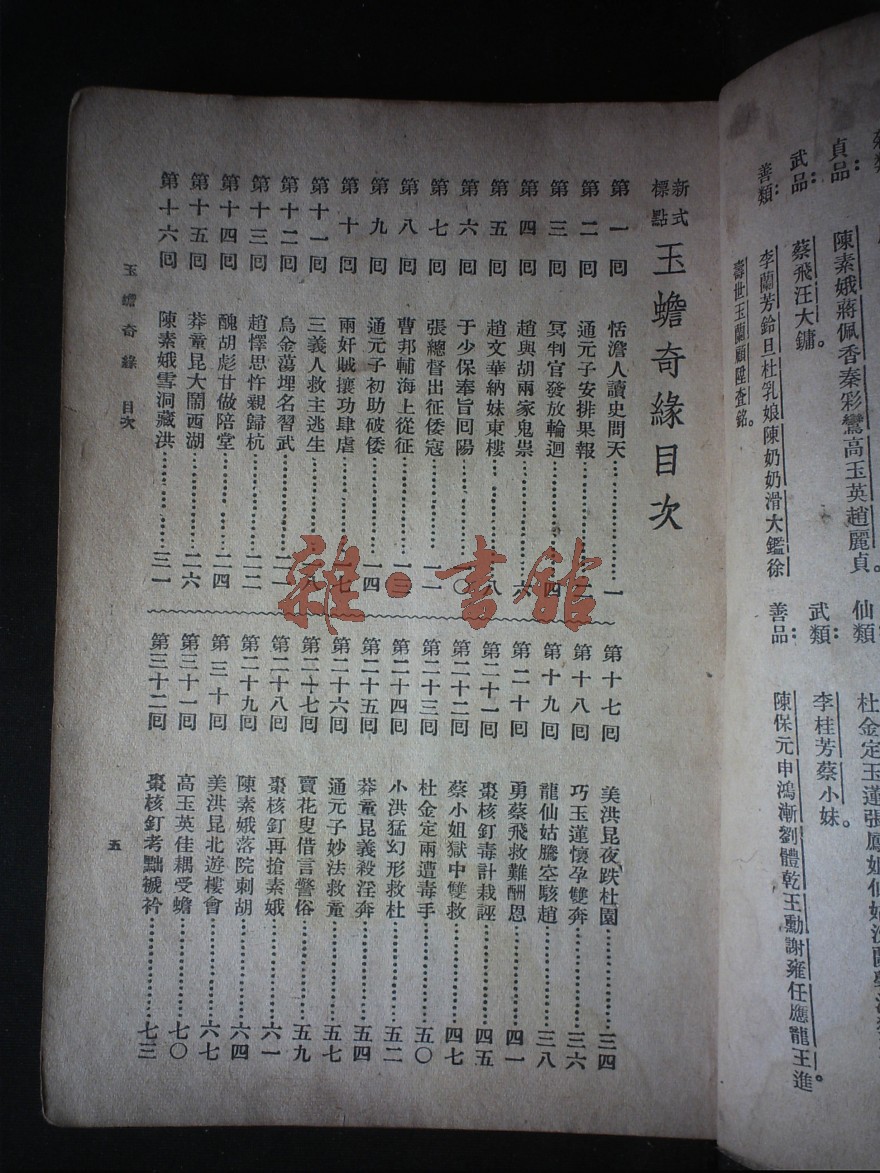 貞品：陳素娥蔣佩香秦彩鸞高玉英趙麗貞。
武品：蔡飛汪大鏞。
善類：李蘭芳鈴旦杜乳娘陳奶奶滑大鑑徐
壽世玉蘭顧陞查銘。
仙類
武類：李桂芳蔡小妹。
善品：陳保元申鴻漸劉體乾王勳謝雍任應龍王進。
新式標點 玉蟾奇緣目次
第一回 恬澹人讀史問天…………一
第二回 通元子安排果報…………二
第三回 冥判官發放輪迴…………四
第四回 趙與胡兩家鬼祟…………六
第五回 趙文華納妹東樓…………八
第六回 于少保奉旨回陽…………一〇
第七回 張總督出征倭寇…………一一
第八回 曹邦輔海上從征…………一三
第九回 通元子初助破倭…………一四
第十回 兩奸賊攘功肆虐…………一七
第十一回 三義人救主逃生…………八
第十二回 烏金蕩埋名習武…………二一
第十三回 趙懌思忤親歸杭…………二二
第十四回 醜胡彪甘做陪堂…………二四
第十五回 莽童昆大鬧西湖…………二六
第十六回 陳素娥雪洞藏洪…………三一
第十七回 美洪昆夜跌杜園…………三四
第十八回 巧玉蓮懷孕雙奔…………三六
第十九回 龍仙姑騰空駭趙…………三八
第二十回 勇蔡飛救難酬恩…………四一
第二十一回 棗核釘毒計栽誣…………四五
第二十二回 蔡小姐獄中雙救…………四七
第二十三回 杜金定兩遭毒手…………五〇
第二十四回 小洪猛幻形救杜…………五二
第二十五回 莽童昆義殺淫奔…………五四
第二十六回 通元子妙法救童…………五七
第二十七回 賣花叟借言警俗…………五九
第二十八回 棗核釘再搶素娥…………六一
第二十九回 陳素娥落院刺胡…………六四
第三十回 美洪昆北遊樓會…………六七
第三十一回 高玉英佳耦受蟾…………七〇
第三十二回 棗核釘考黜褫衿…………七三
玉蟾奇緣 目次
五
雜·書館